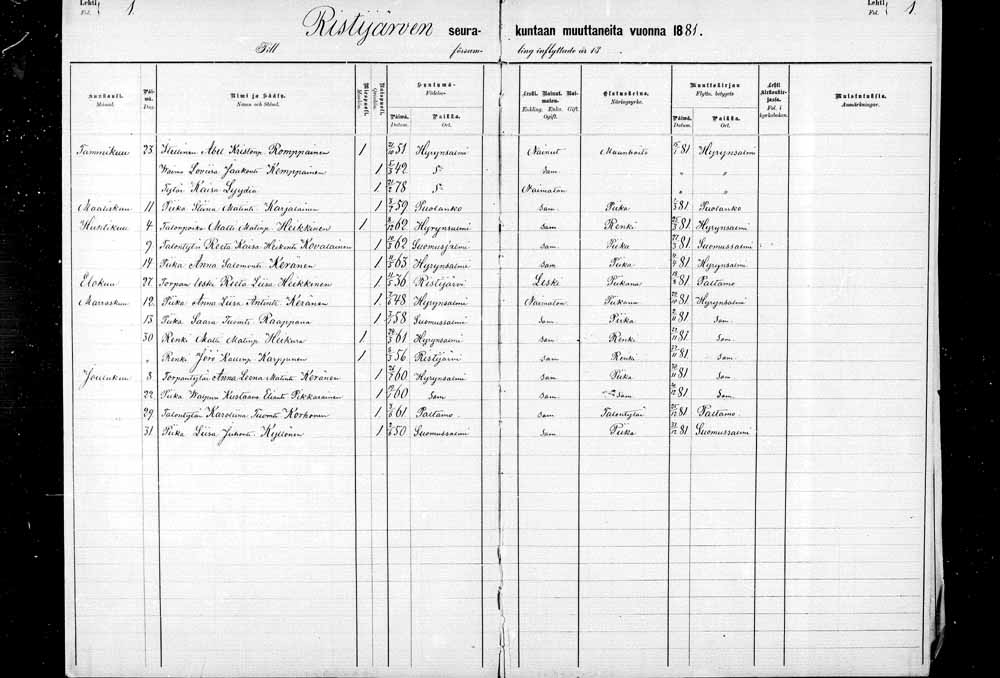 Lehti 1.
Fol.
Lehti 1.
Fol.
Ristijärven seurakuntaan muuttaneita vuonna 1881.
Till församling inflyttade år 18
Kuukausi. Päivä. Nimi ja Sääty. Miespuoli. Naispuoli. Syntymä- Leski. Nainut. Naimaton. Elatuskeino. Muuttokirjan Lehti kirkonkirjasta. Muistutuksia.
Månad. Dag. Namn och Stånd. Mankön. Qvinkön. Födelse- Enkling. Enka. Gift. Ogift. Näringsyrke. Flyttn. betygets Fol. i kyrkoboken. Anmärkningar.
Päivä. Paikka. Päivä. Paikka.
Datum. Ort. Datum. Ort.
Tammikuu 23 Itellinen Abel Kristianp. Romppainen 1 51 Hyrynsalmi Nainut Maanhoito 81 Hyrynsalmi
Waimo Lovisa Jaakont. Kemppainen 1 42 S:a sam " "
Tytär Kaisa Lyydia 1 78 S:a Naimaton " "
Maaliskuu 11 Piika Stiina Matint. Karjalainen 1 59 Puolanko sam Piika 81 Puolanko
Huhtikuu 4 Talonpoika Matti Matinp. Heikkinen 1 62 Hyrynsalmi sam Renki 81 Hyrynsalmi
9 Talontytär Reeta Kaisa Heikint. Kovalainen 1 62 Suomusjalmi sam Piika 81 Suomussalmi
14 Piika Anna Salomont. Keränen 1 63 Hyrynsalmi sam Piika 81 Hyrynsalmi
Elokuu 27 Torpan leski Reeta Liisa Heikkinen 1 36 Ristijärvi Leski Piikana 81 Paltamo
Marraskuu 12 Piika Anna Liisa Antint. Keränen 1 48 Hyrynsalmi Naimaton Piikana 81 Hyrynsalmi
13 Piika Saara Tuomt. Raappana 1 58 Suomussalmi sam Piika 81 sam
30 Renki Matti Matinp. Heikura 1 61 Hyrynsalmi sam Renki 81 sam
" Renki Jörö Kaurinp. Karppinen 1 56 Ristijärvi sam Renki 81 sam
Joulukuu 8 Torpantytär Anna Leena Matint. Keränen 1 60 Hyrynsalmi sam Piika 81 sam
22 Piika Walpuri Kustaava Eliant. Pikkarainen 1 60 sam sam sam 81 sam
29 Talontytär Karoliina Tuomt. Korhonen 1 61 Paltamo sam Talontytär 81 Paltamo
31 Piika Liisa Juhont. Kyllönen 1 50 Suomussalmi sam Piika 81 Suomussalmi